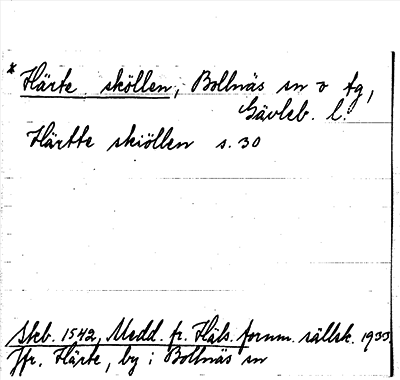 * Härte sköllen, Bollnäs sn o tg,
Gävleb. l.
Härtte skiöllen s. 30
Skb. 1542, Medd. fr. Häls. fornm. sällsk. 1933
Jfr. Härte, by i Bollnäs sn